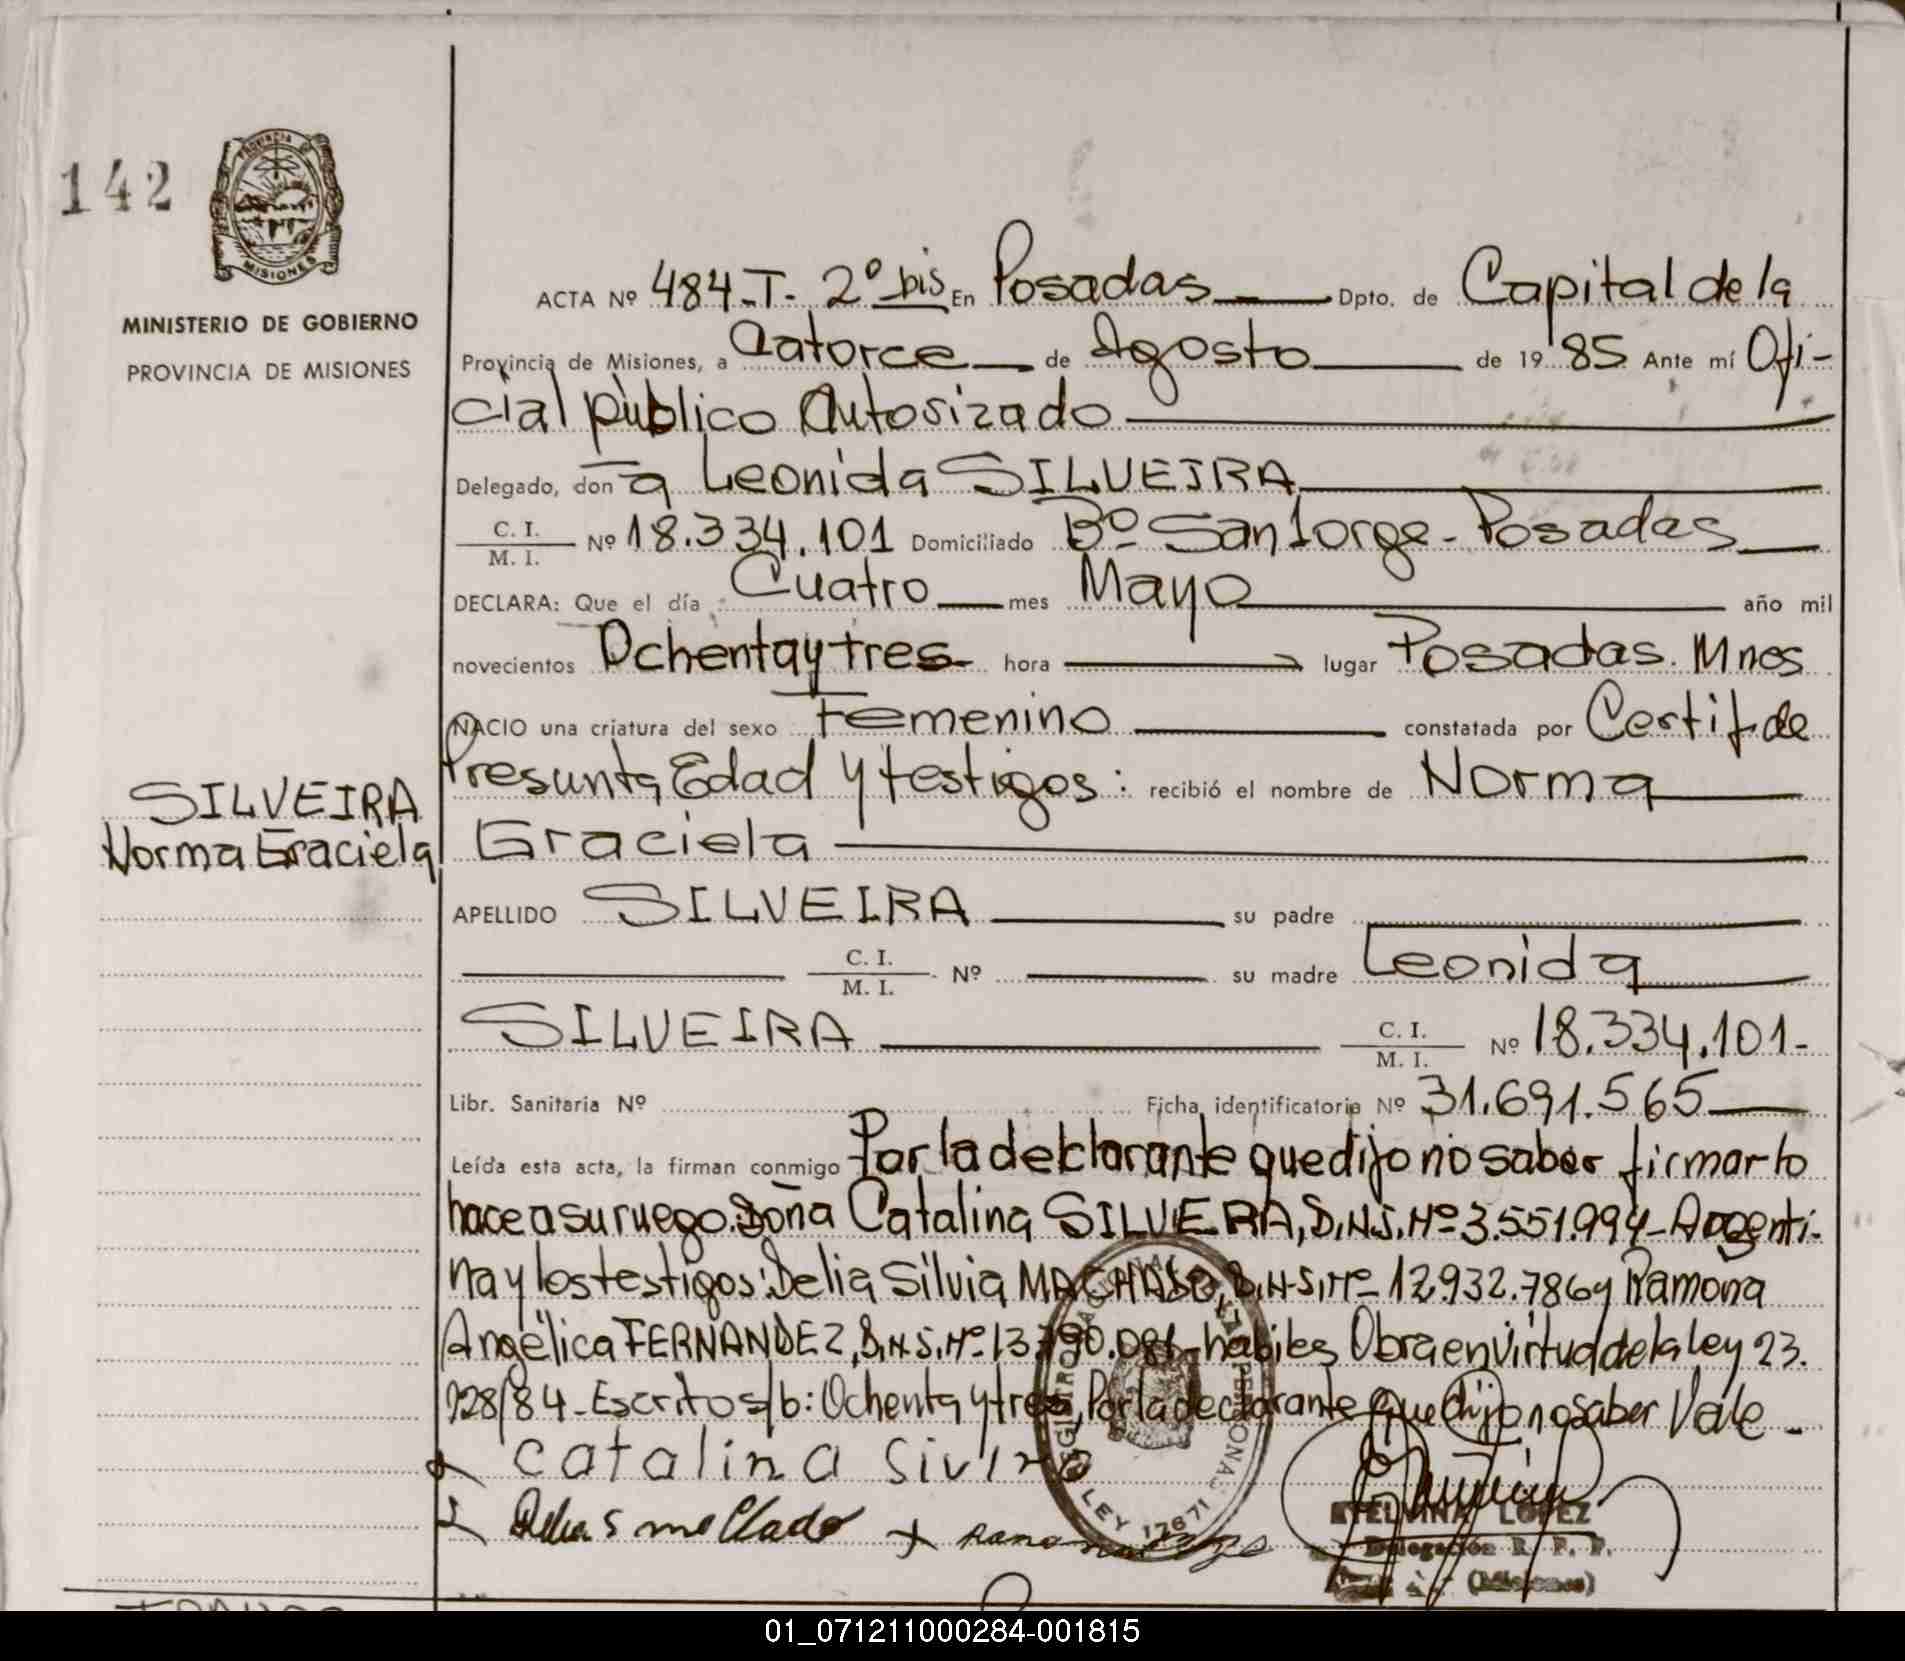 142
PROVINCIA DE
MISIONES
MINISTERIO DE GOBIERNO
PROVINCIA DE MISIONES
SILVEIRA
Norma Graciela
ACTA Nº 484-T- 2º bis En Posadas Dpto. de Capital de la
Provincia de Misiones, a Catorce de Agosto de 1985 Ante mí Ofi-
cial público Autorizado
Delegado, don a Leonida SILVEIRA
C. I.
M. I. Nº 18.334.101 Domiciliado Bº San Jorge - Posadas
DECLARA: Que el día Cuatro mes Mayo año mil
novecientos Ochenta y tres hora lugar Posadas. Mnes
NACIO una criatura del sexo Femenino constatada por Certif. de
Presunta Edad y testigos: recibió el nombre de Norma
Graciela
APELLIDO SILVEIRA su padre
C. I.
M. I. Nº su madre Leonida
SILVEIRA C. I.
M. I. Nº 18.334.101-
Libr. Sanitaria Nº Ficha identificatoria Nº 31.691.565
Leída esta acta, la firman conmigo Por la declarante que dijo no saber firmar lo
hace a su ruego. Doña Catalina SILVERA, D.N.I. Nº 3.551.994- Argenti-
na y los testigos: Delia Silvia MACHADO, D.N.I. Nº 12.932.786 y Ramona
Angélica FERNANDEZ, D.N.I. Nº 13.790.081- hábiles Obra en virtud de la ley 23.
128/84- Escritos/b: Ochenta y tres, Por la declarante que dijo no saber Vale-
catalina
REGISTRO NACIONAL PERSONAS
LEY 17671
ETELVINA LOPEZ
Delegación R. P. P.
(Misiones)
01_071211000284-001815